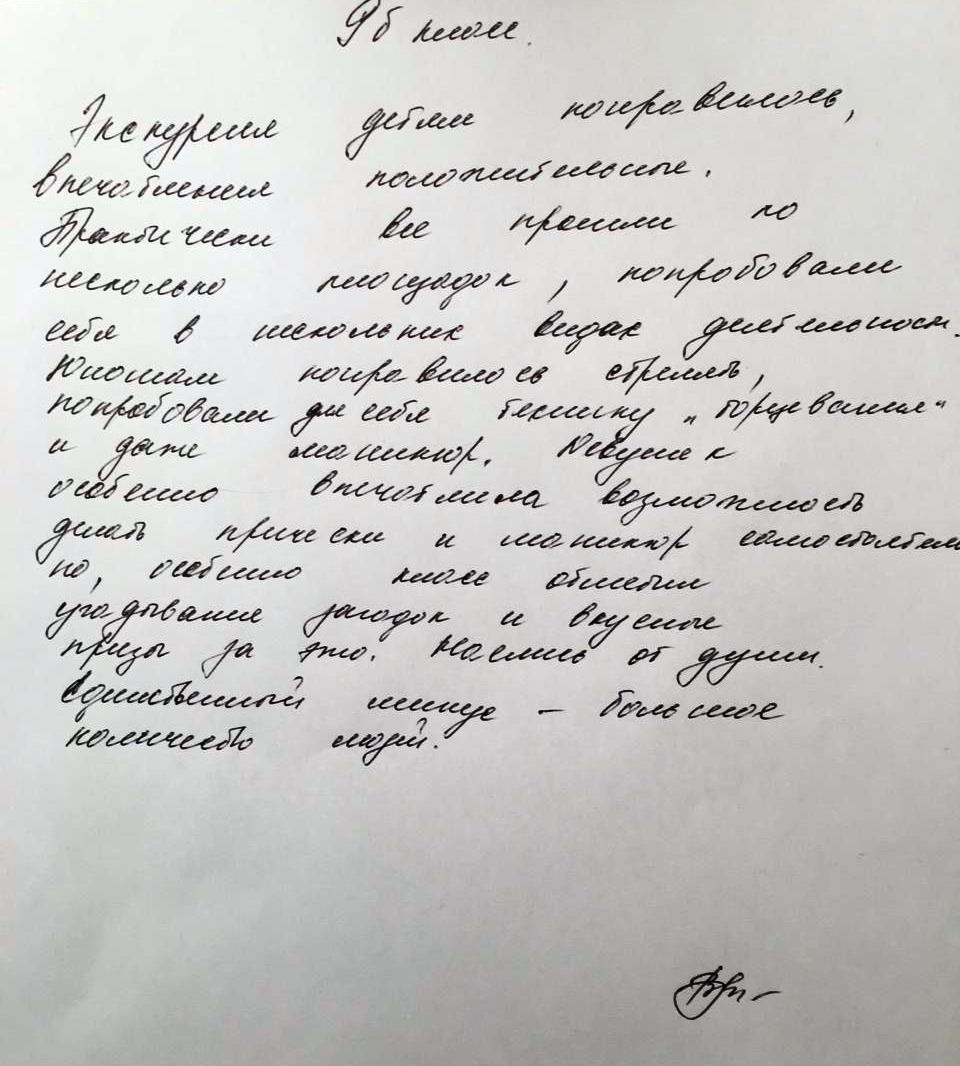 9б класс.
Экскурсия детям понравилось,
впечатления положительные.
Практически все прошли по
несколько площадок, попробовали
себя в нескольких видах деятельност.
Юношам понравилось стрелять,
попробовали для себя технику „торцевания“
и даже маникюр. Девушек
особенно впечатлила возможность
делать прически и маникюр самостоятель
но, особенно класс отметил
угадывание загадок и вкусные
призы за это. Наелись от души.
Единственный минус – большое
количество людей.